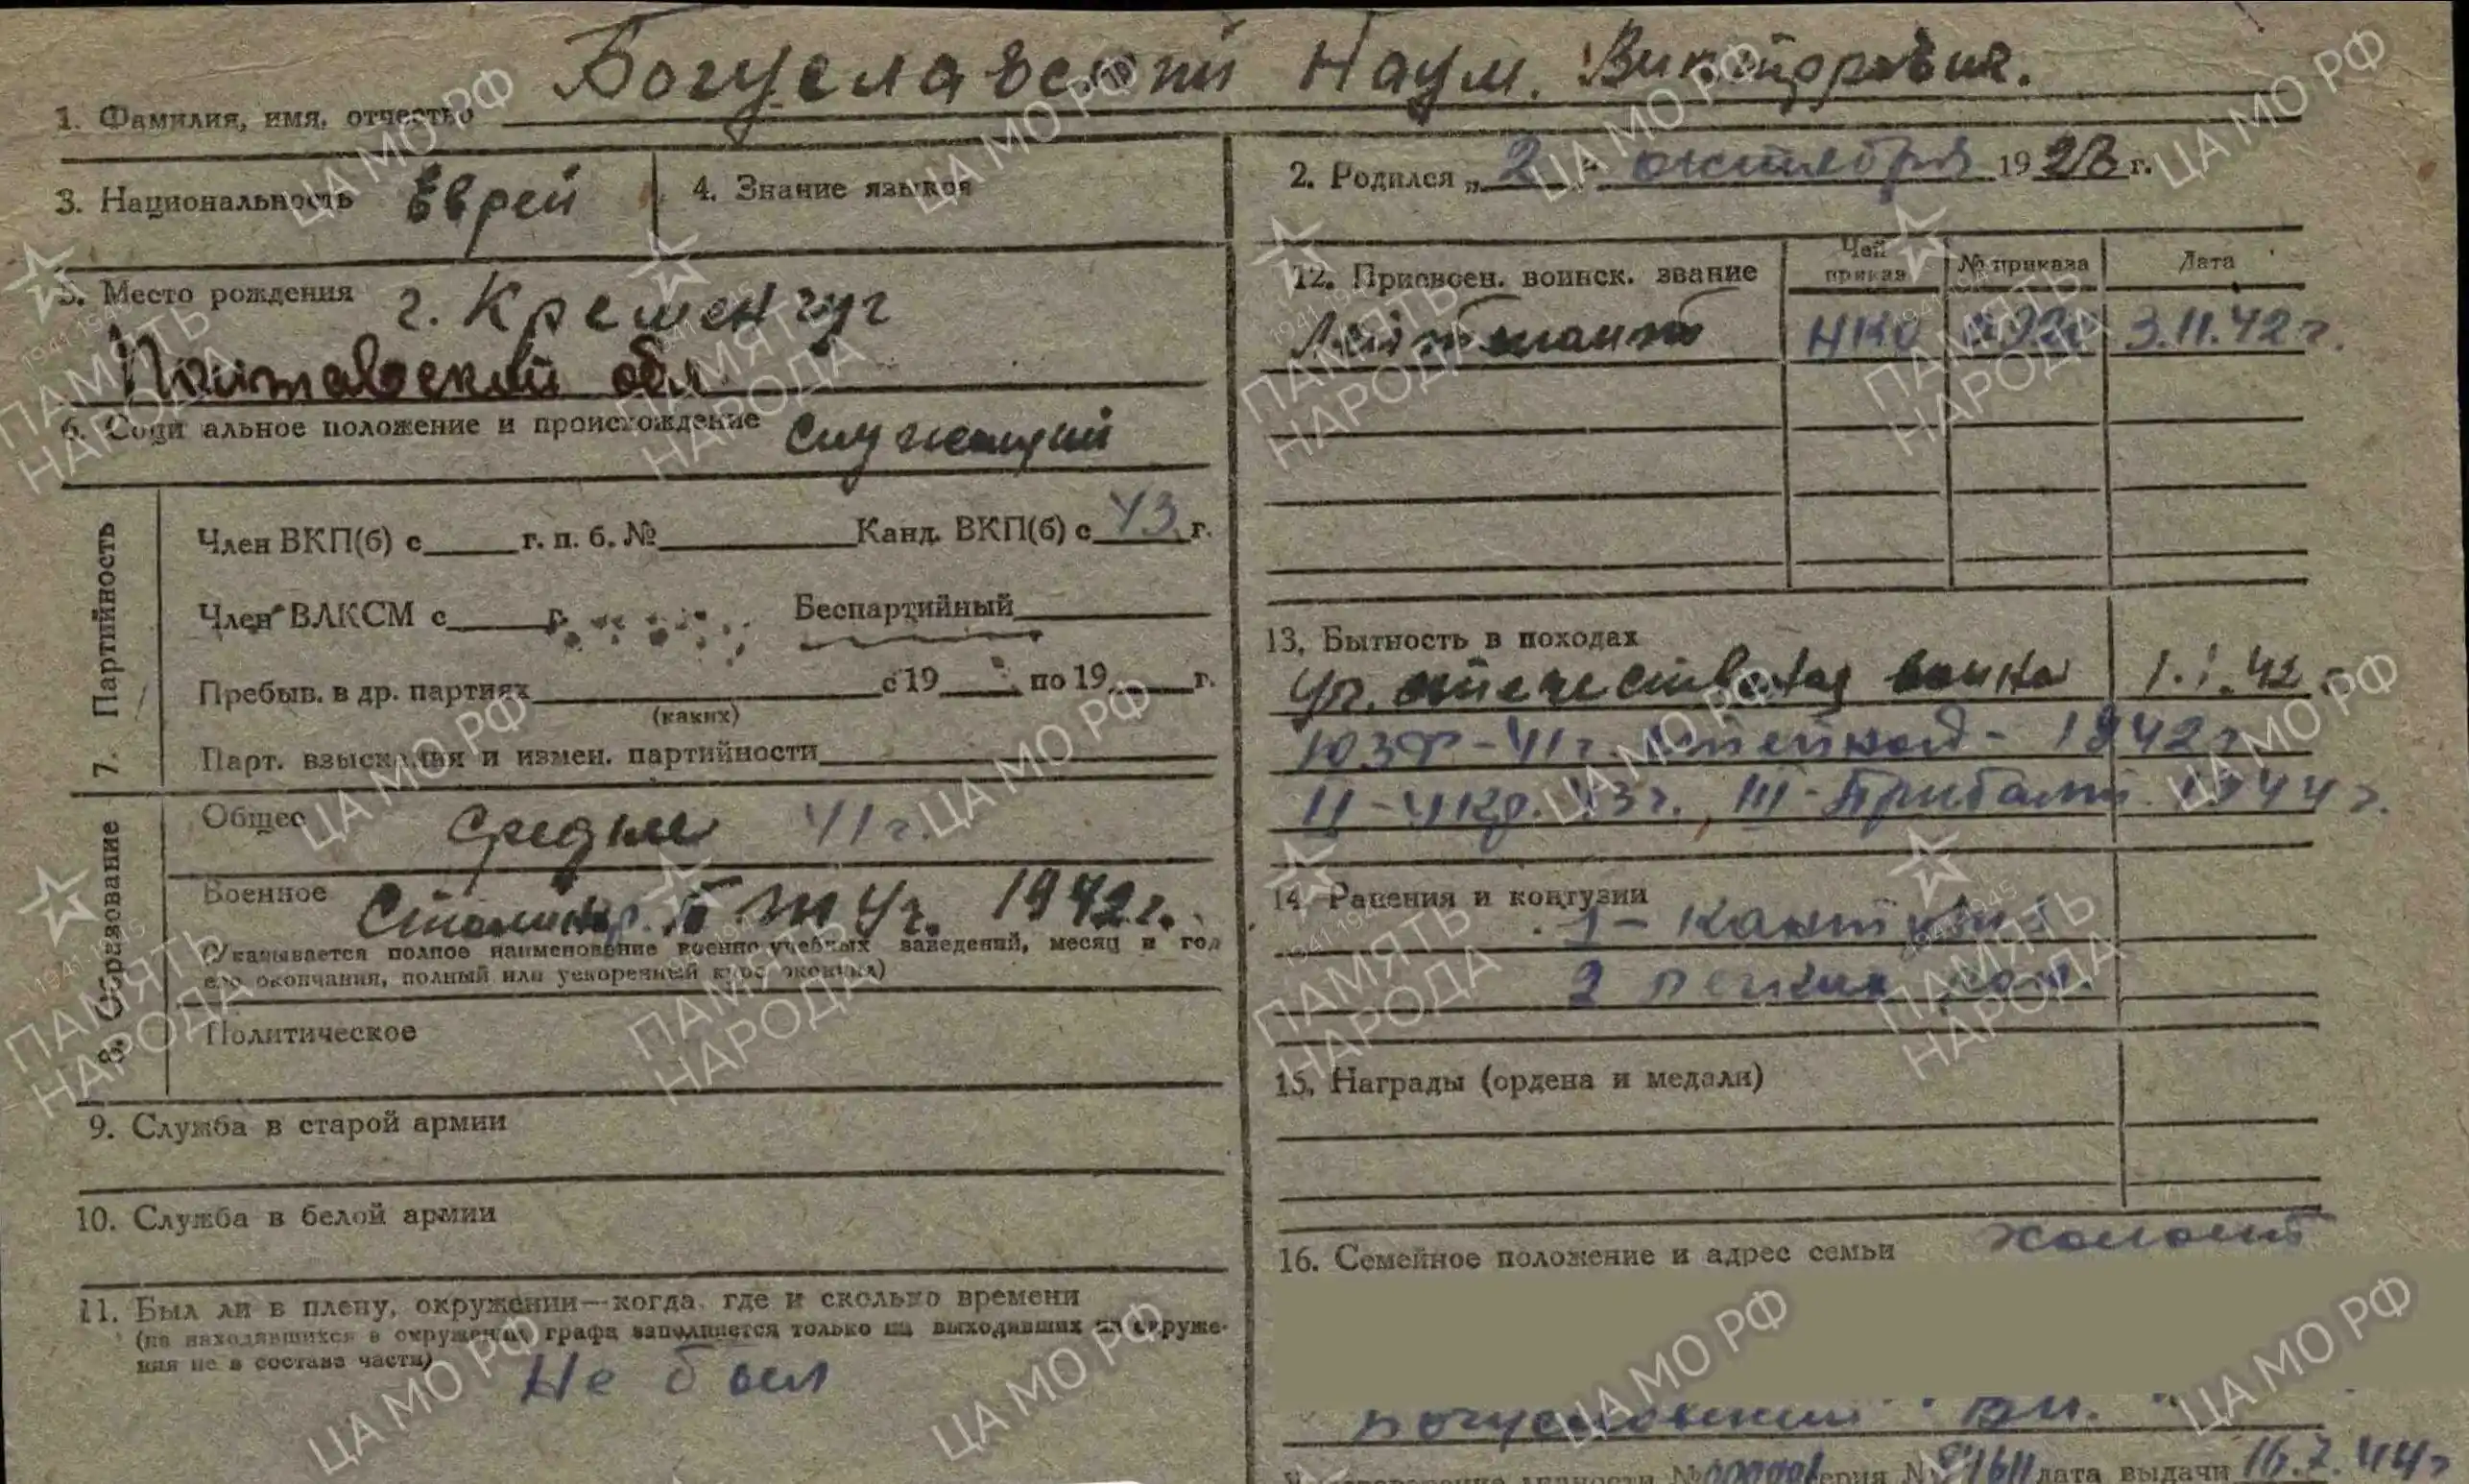 1. Фамилия, имя, отчество Богуславский Наум. Викторович.
3. Национальность Еврей
4. Знание языков
5. Место рождения г. Кременчуг
Полтавской обл
6. Социальное положение и происхождение служащий
7. Партийность
Член ВКП(б) с г. п. б. № Канд. ВКП(б) с 43 г.
Член ВЛКСМ с г. Беспартийный
Пребыв. в др. партиях с 19 по 19 г.
(каких)
Парт. взыскания и измен. партийности
8. Образование
Общее средне 41 г.
Военное Сталингр. Т уч. 1942г.
(Указывается полное наименование военно учебных заведений, месяц и год
его окончания, полный или ускоренный курс окончил)
Политическое
9. Служба в старой армии
10. Служба в белой армии
11. Был ли в плену, окружении—когда, где и сколько времени
(на находившихся в окружении графа заполняется только на выходивших из окруже-
ния не в составе части)
Не был
2. Родился „2" октября 1923 г.
12. Присвоен. воинск. звание Чей приказ № приказа Дата
Лейтенант НКО 3.11.42 г.
13. Бытность в походах
От. отечественная война 1.1.42
ЮЗФ-41г. Степной - 1942 г
II-Укр. 43 г., III-Прибалт. 1944 г.
14. Ранения и контузии
1- контузия
2 легких ран.
15. Награды (ордена и медали)
16. Семейное положение и адрес семьи холост
Богуславский В.И.
личности № серия № дата выдачи 16.7.44г
ЦА МО РФ
ПАМЯТЬ
НАРОДА
1941 1945